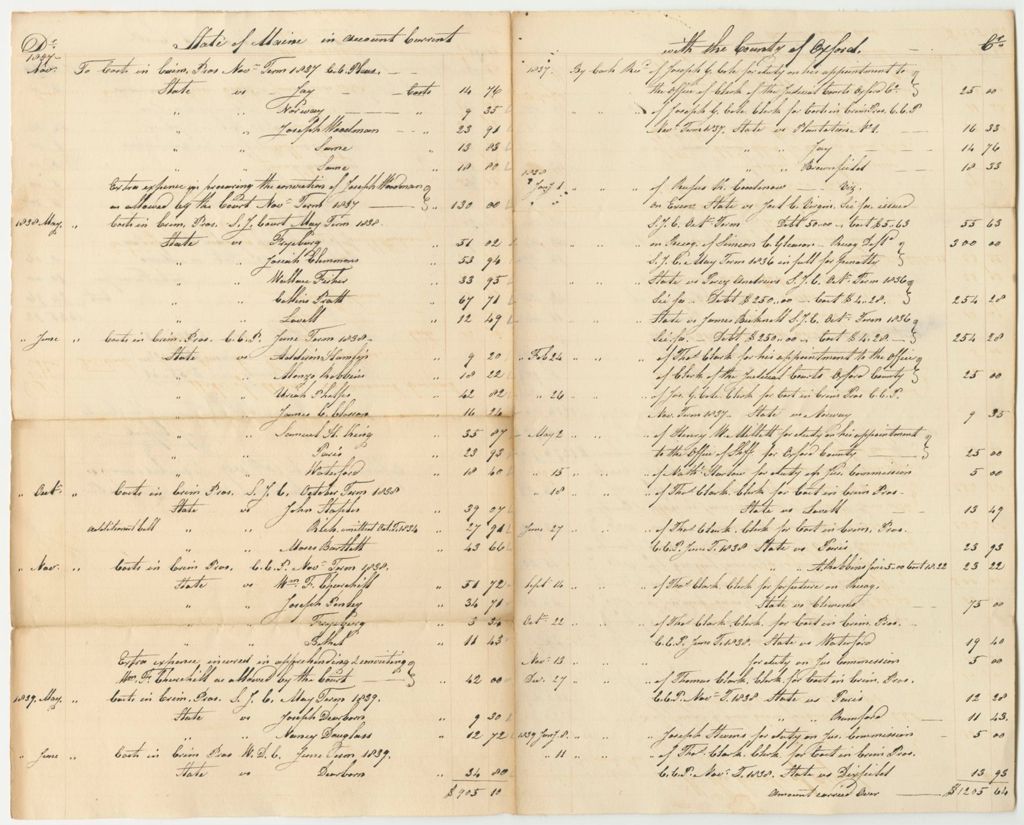 Dr.
State of Maine in Account Current
1837
Nov. To Costs in Crim. Pros. Nov. Term 1837 C.C. Pleas.
State vs Jay Costs 14 76
" " Norway " 9 35
" " Joseph Woodman " 23 91
" " Same " 13 83
" " Same " 18 80
Extra expense in procuring the conviction of Joseph Woodman
as allowed by the Court Nov. Term 1837 " 130 00
1838 May, " Costs in Crim. Pros. S. J. Court May Term 1838.
State vs Fryeburg " 51 02
" " Josiah Clemmons " 53 94
" " Wallace Fisher " 33 95
" " Pratt " 67 71
" " Lovell " 12 49
" June " Costs in Crim. Pros. C.C.P. June Term 1838.
State vs Addison " 9 20
" " Alonzo Robbins " 18 22
" " Uriah Phelps " 42 82
" " James C. " 16 26
" " Samuel H. King " 35 87
" " Paris " 23 93
" " Waterford " 18 40
" Oct. " Costs in Crim. Pros. S. J. C. October Term 1838
State vs John Staples " 39 07
additional bill " omitted Oct. T. 1834 " 27 91
" " Moses Bartlett " 43 66
" Nov. " Costs in Crim. Pros. C.C.P. Nov. Term 1838.
State vs Wm. F. Churchill " 51 72
" " Joseph Penley " 34 71
" " Fryeburg " 3 34
" " Bethel " 11 43
Extra expense incurred in apprehending & convicting
Wm. F. Churchill as allowed by the Court " 42 00
1839, May, " Costs in Crim. Pros. S. J. C. May Term 1839.
State vs Joseph Dearborn " 9 30
" " Nancy Douglass " 12 72
" June " Costs in Crim. Pros W.D.C. June Term 1839.
State vs Dearborn " 34 80
$ 905 10
with the County of Oxford. Cr.
1837. By Cash Rec'd of Joseph G. Cole for duty on his appointment to
the Office of Clerk of the Judicial Courts Oxford Co. 25 00
" " of Joseph G. Cole, Clerk for Costs in Crim Pros. C.C.P
Nov. Term 1837. State vs Plantation No. 1. 16 33
" " Jay 14 76
" " Brownfield 18 33
1838
Jany 1 " " of Rufus K. Goodenow Viz.
" " on Exon. State vs Joel C. Virgin Sci. fa. issued
S.J.C. Oct. Term Debt 50.00 Cost $5.63 55 63
in Recog. of Simeon C. Gleason Recog Deft.
S.J.C. May Term 1836 in full for penalty 300 00
State vs Percy Andrews S.J.C. Oct. Term 1836
Sci fa. Debt $250.00 Cost $4.28. 254 28
State vs James Bicknell S.J.C. Oct. Term 1836
Sci fa. Debt $250.00 Cost $4.28 254 28
" Feb 24 " " of Thos Clark for his appointment to the Office
of Clerk of the Judicial Courts Oxford County 25 00
" 26 " " of Jos. G. Cole Clerk for Cost in Crim Pros C.C.P.
Nov. Term 1837. State vs Norway 9 35
" May 2 " " of Henry W. Millett for duty on his appointment
to the Office of Shff for Oxford County 25 00
" 15 " " of Nath. Harlow for duty on Jus. Commission 5 00
" 18 " " of Thos Clark, Clerk for Cost in Crim Pros.
State vs Lovell 13 49
June 27 " " of Thos Clark. Clerk for Cost in Crim. Pros.
C.C.P. June T. 1838 State vs Paris 23 93
" " A Robbins fine 5.00 Cost 18.22 23 22
Sept 14 " " of Thos Clark Clerk for forfeiture on Recog.
State vs Clemons 75 00
Oct. 22 " " of Thos Clark, Clerk for Cost in Crim. Pros.
C.C.P. June T. 1838. State vs Waterford 19 40
Nov. 13 " " for duty on Jus Commission 5 00
Dec. 27 " " of Thomas Clark, Clerk for Cost in Crim. Pros.
C.C.P. Nov. T. 1838 State vs Paris 12 28
" " Rumford 11 43.
1839 Jany 8. " " Joseph Stevens for duty on Jus. Commission 5 00
" 11 " " of Thos Clark, Clerk for Cost in Crim Pros.
C.C.P. Nov. T. 1838. State vs Dixfield 13 93
Amount carried Over $1205 64